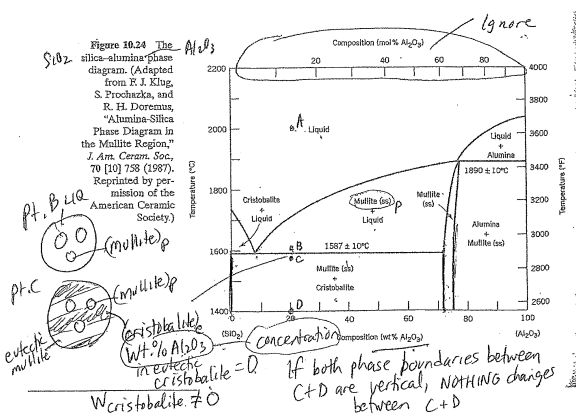 Ignore
Composition (mol % Al₂O₃)
20 40 60 80
SiO₂
Al₂O₃
Figure 10.24 The
silica–alumina phase
diagram. (Adapted
from F. J. Klug,
S. Prochazka, and
R. H. Doremus,
"Alumina-Silica
Phase Diagram in
the Mullite Region,"
J. Am. Ceram. Soc.,
70 [10] 758 (1987).
Reprinted by per-
mission of the
American Ceramic
Society.)
2200
2000
1800
1600
1400
Temperature (°C)
4000
3800
3600
3400
3200
3000
2800
2600
Temperature (°F)
A
Liquid
Liquid
+
Alumina
1890 ± 10°C
Cristobalite
+
Liquid
Mullite (ss)
+
Liquid
P
Mullite
(ss)
Alumina
+
Mullite (ss)
B
1587 ± 10°C
C
Mullite (ss)
+
Cristobalite
D
0 20 40 60 80 100
(SiO₂)
Composition (wt % Al₂O₃)
(Al₂O₃)
pt. B LIQ
(mullite)p
pt. C
(mullite)p
eutectic
mullite
cristobalite)
wt.% Al₂O₃
in eutectic
cristobalite = 0
W cristobalite ≠ 0
concentration
If both phase boundaries between
C+D are vertical, NOTHING changes
between C+D